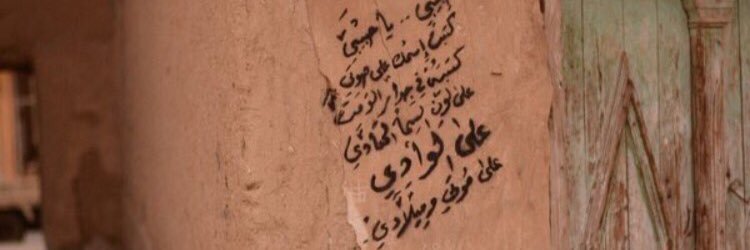 حبيبتي .. يا حبيبتي
كتبت إسمك على صوتي
كتبته في جدار الوقت
على لون السما الهادي
على الوادي
على موتي وميلادي